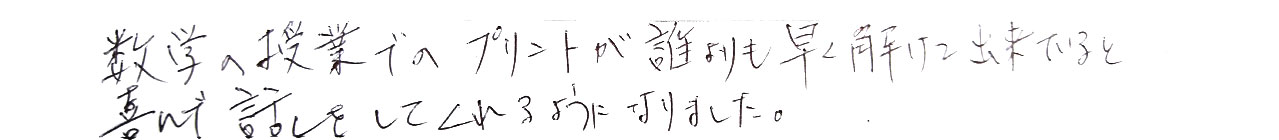 数学の授業でのプリントが誰よりも早く解けて出来ていると
喜んで話しをしてくれるようになりました。